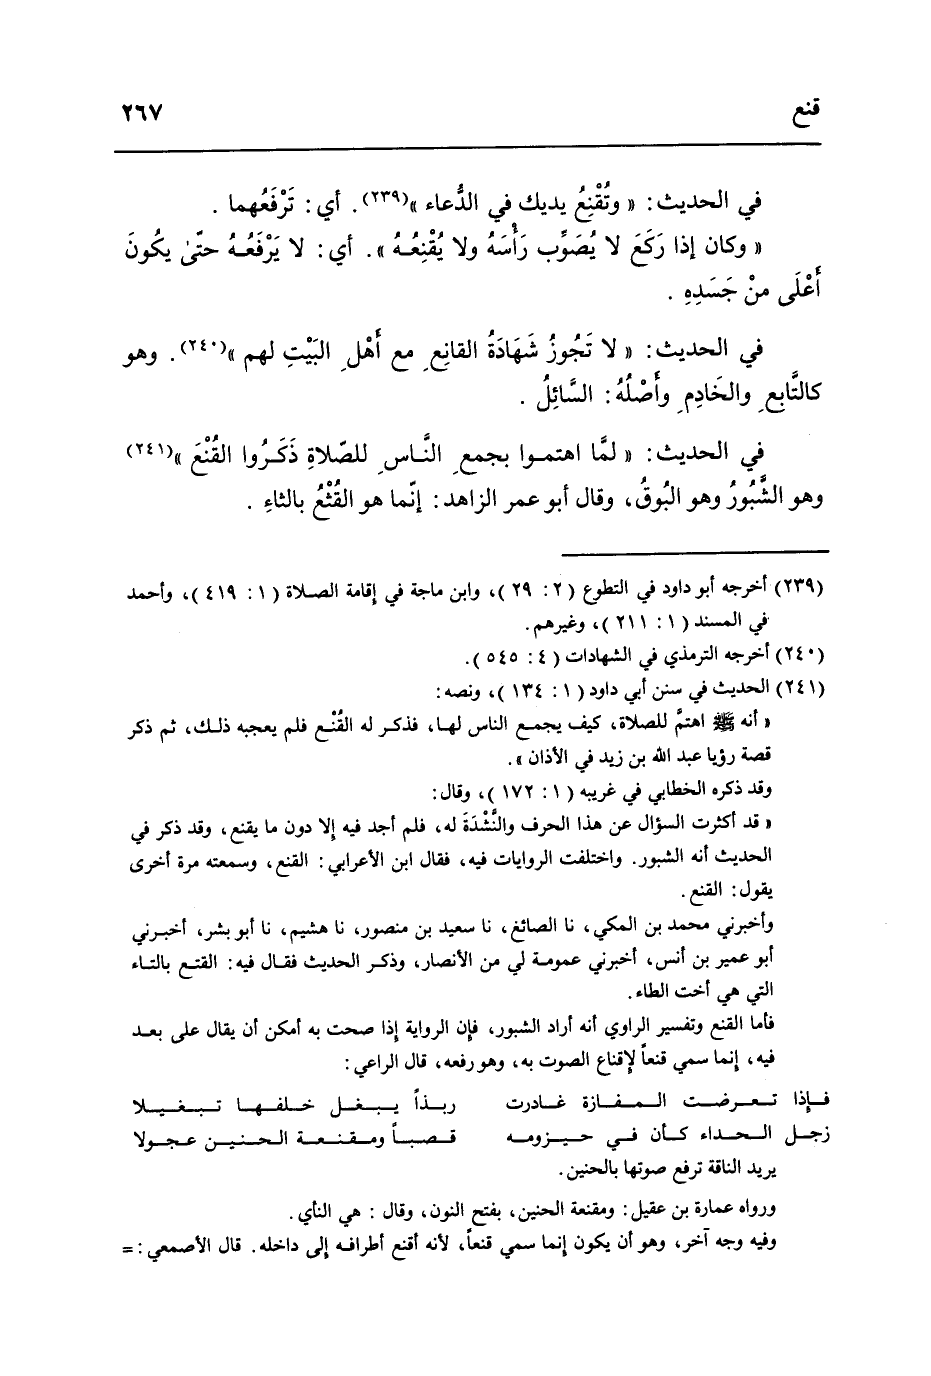 قنع ٢٦٧
في الحديث: « وتُقْنِعُ يديك في الدُّعاء »(٢٣٩). أي: تَرْفَعُهما .
« وكان إذا رَكَعَ لا يُصَوِّب رَأْسَهُ ولا يُقْنِعُهُ ». أي: لا يَرْفَعُهُ حتّىٰ يكُونَ
أَعْلَى منْ جَسَدِهِ .
في الحديث: « لا تَجُوزُ شَهَادَةُ القانِعِ مع أَهْلِ البَيْتِ لهم »(٢٤٠). وهو
كالتَّابعِ والخَادِمِ وأَصْلُهُ: السَّائِلُ .
في الحديث: « لمَّا اهتموا بجمعِ النَّاسِ للصّلاةِ ذَكَرُوا القُنْعَ »(٢٤١)
وهو الشَّبُورُ وهو البُوقُ، وقال أبو عمر الزاهد: إنّما هو القُثْعُ بالثاءِ .
(٢٣٩) أخرجه أبو داود في التطوع (٢: ٢٩)، وابن ماجة في إقامة الصلاة (١: ٤١٩)، وأحمد
في المسند (١: ٢١١)، وغيرهم.
(٢٤٠) أخرجه الترمذي في الشهادات (٤: ٥٤٥).
(٢٤١) الحديث في سنن أبي داود (١: ١٣٤)، ونصه:
« أنه ﷺ اهتمَّ للصلاة، كيف يجمع الناس لها، فذكر له القُنْع فلم يعجبه ذلك، ثم ذكر
قصة رؤيا عبد الله بن زيد في الأذان ».
وقد ذكره الخطابي في غريبه (١: ١٧٢)، وقال:
« قد أكثرت السؤال عن هذا الحرف والنَّشْدَةَ له، فلم أجد فيه إلا دون ما يقنع، وقد ذكر في
الحديث أنه الشبور. واختلفت الروايات فيه، فقال ابن الأعرابي: القنع، وسمعته مرة أخرى
يقول: القنع.
وأخبرني محمد بن المكي، نا الصائغ، نا سعيد بن منصور، نا هشيم، نا أبو بشر، أخبرني
أبو عمير بن أنس، أخبرني عمومة لي من الأنصار، وذكر الحديث فقال فيه: القتع بالتاء
التي هي أخت الطاء.
فأما القنع وتفسير الراوي أنه أراد الشبور، فإن الرواية إذا صحت به أمكن أن يقال على بعد
فيه، إنما سمي قنعاً لإقناع الصوت به، وهو رفعه، قال الراعي:
فإذا تعرضت المفازة غادرت ربذاً يبغل خلفها تبغيلا
زجل الحداء كأن في حيزومه قصباً ومقنعة الحنين عجولا
يريد الناقة ترفع صوتها بالحنين.
ورواه عمارة بن عقيل: ومقنعة الحنين، بفتح النون، وقال : هي النأي.
وفيه وجه آخر، وهو أن يكون إنما سمي قنعاً، لأنه أقنع أطرافه إلى داخله. قال الأصمعي: =